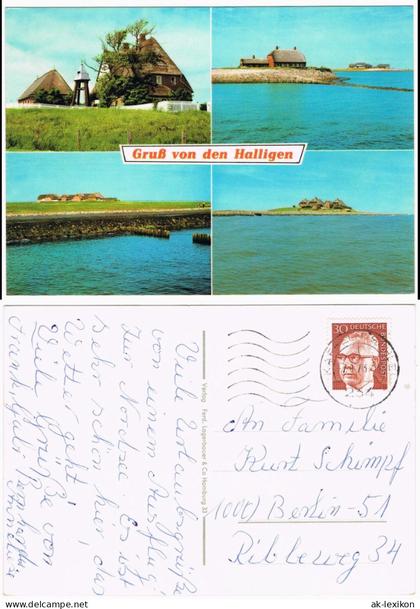 Gruß von den Halligen
Viele Urlaubsgrüße
von einem Ausflug
zur Nordsee. Es ist
sehr schön hier, das
Wetter geht!
Viele Grüße von
Frank, Gabi
Verlag Ferd. Lagerbauer & Co Hamburg 33
30 DEUTSCHE
BUNDESPOST
An Familie
Kurt Schimpf
1000 Berlin-51
Ribbeweg 34
www.ak-ansichtskarten.de
ak-lexikon.com